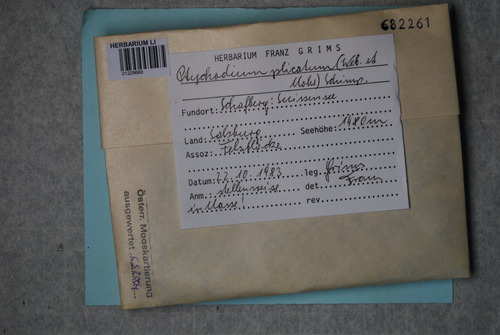 682261
HERBARIUM LI
01229660
HERBARIUM FRANZ GRIMS
Ptychodium plicatum (Web. et
Mohr) Schimp.
Fundort: Schafberg: Suissensee
Land: Salzburg Seehöhe: 1480m
Assoz: Felsblöcke
Datum: 22.10.1983 leg. Grims
Anm. stellenweise det. Franz
in Masse! rev.
Österr. Mooskartierung
ausgewertet